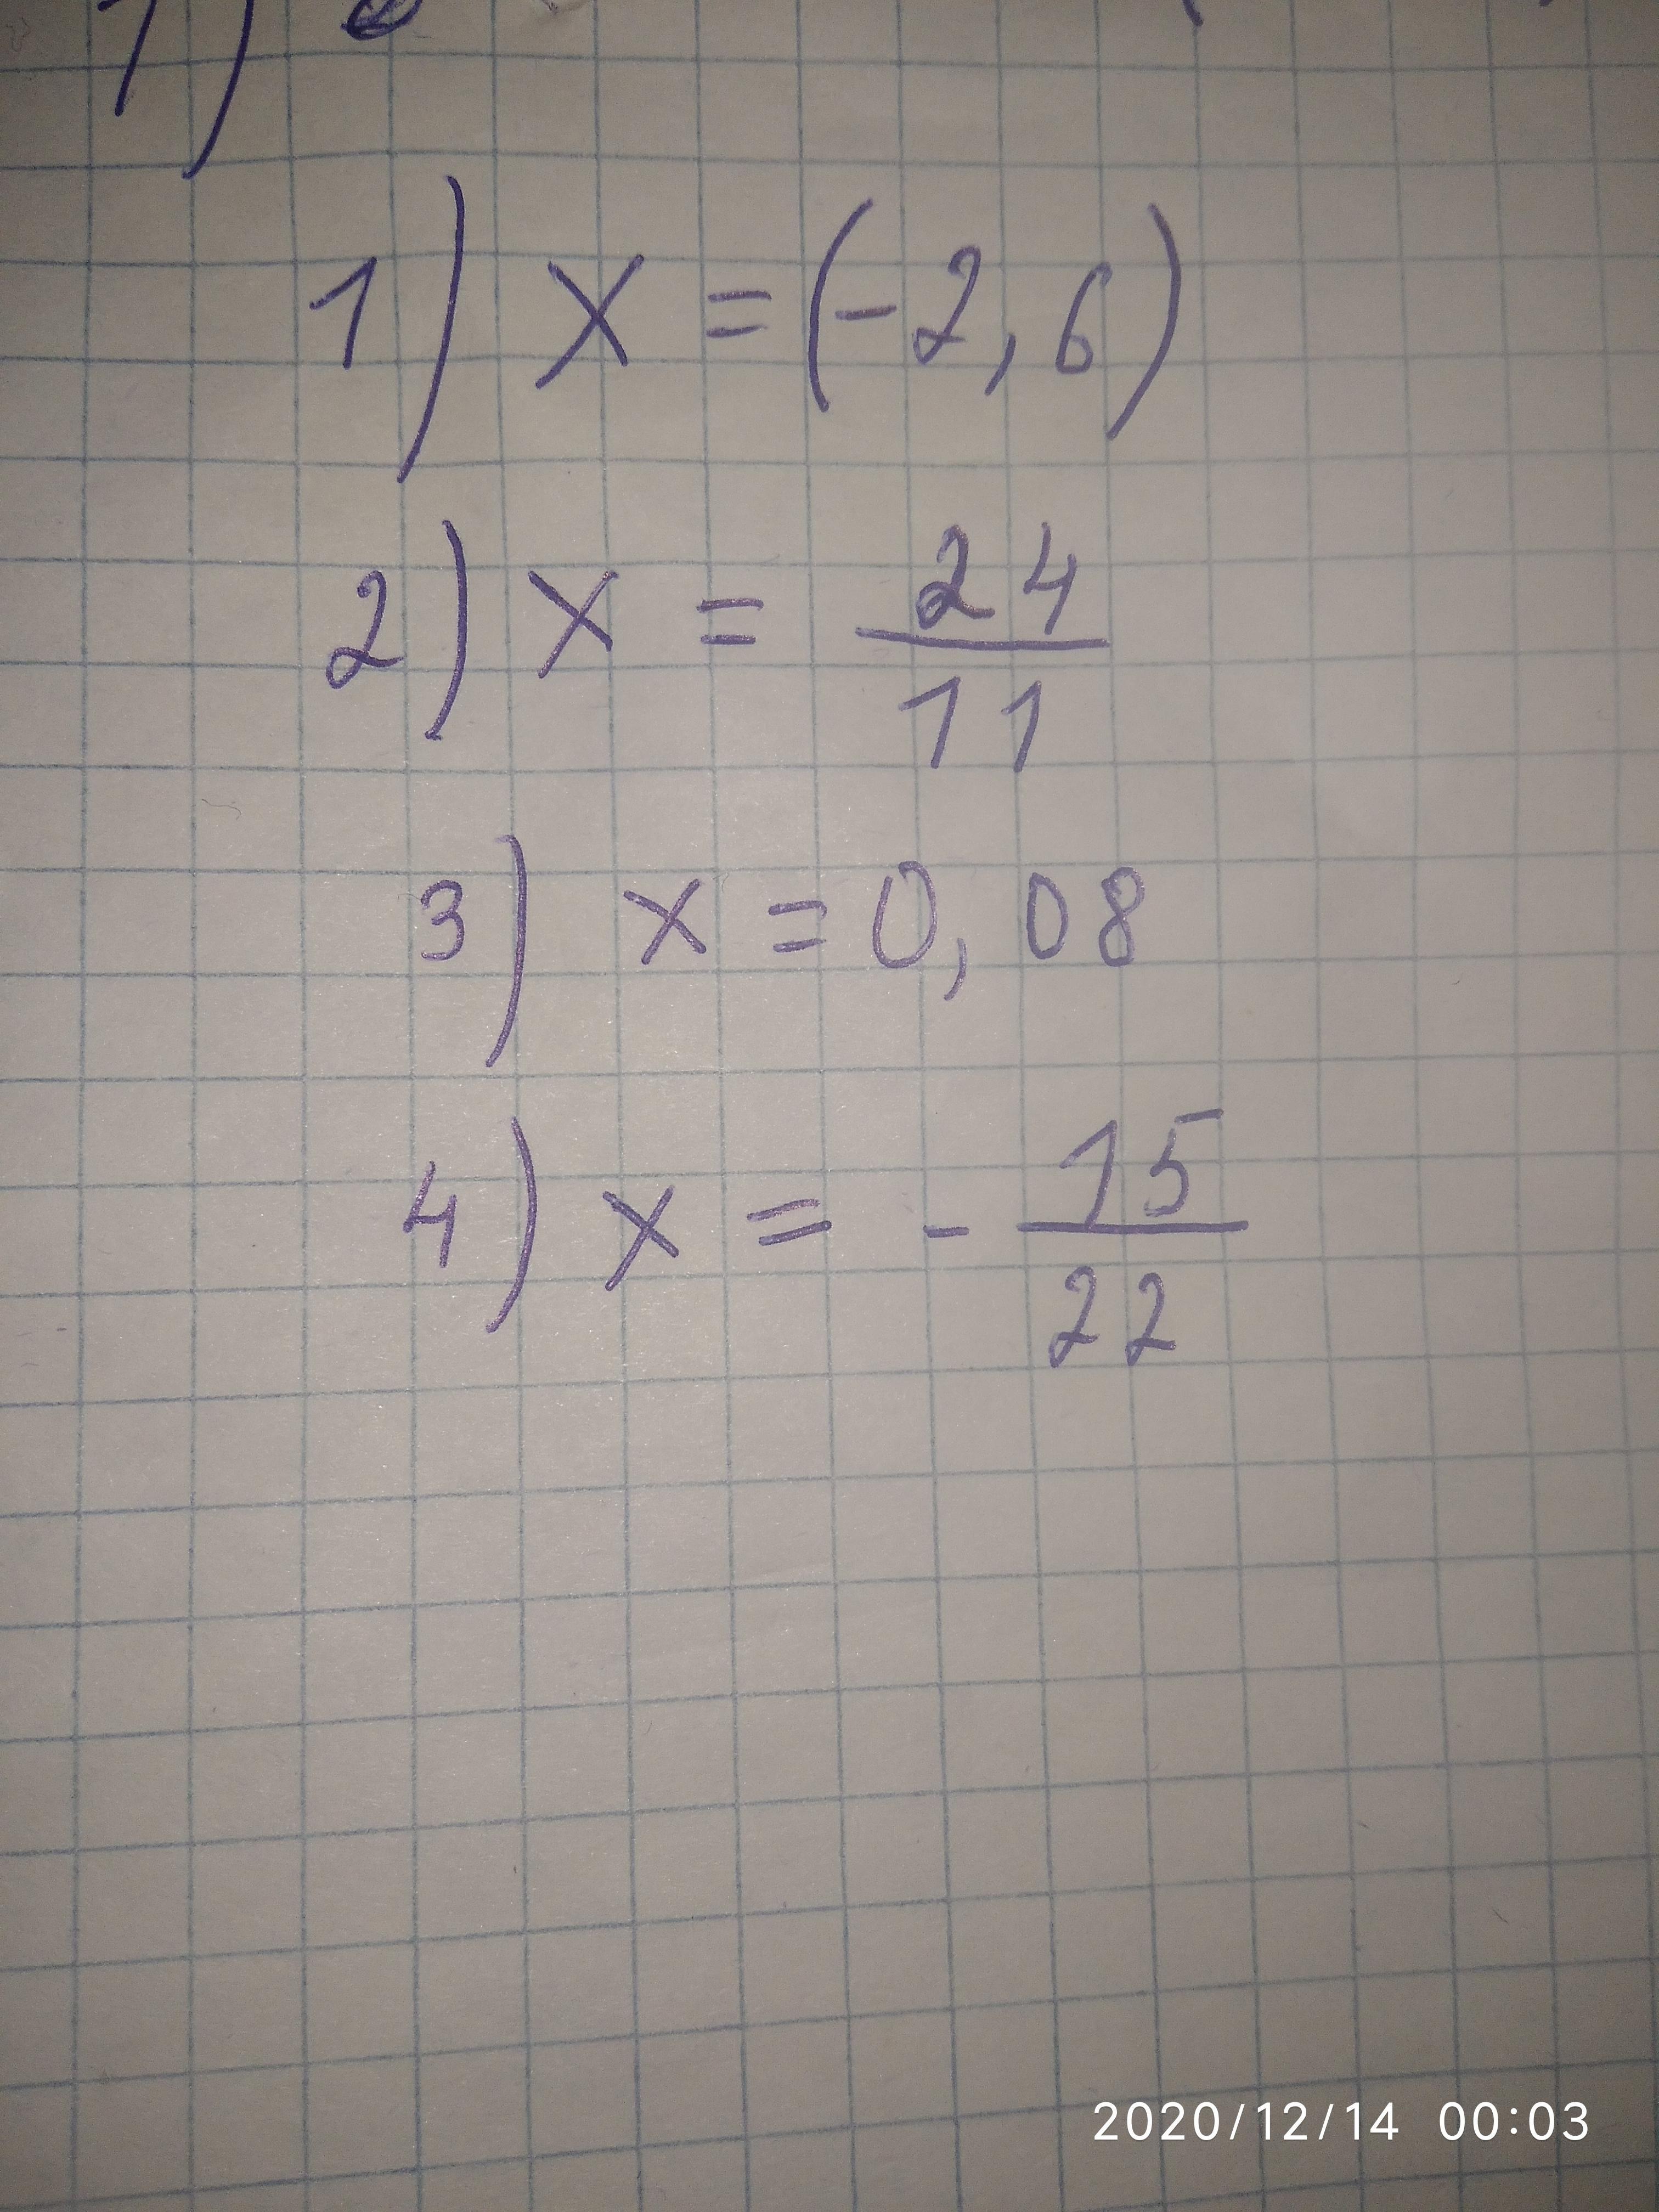 1)
1) x = (-2,6)
2) x = 24/11
3) x = 0,08
4) x = - 15/22
2020/12/14 00:03